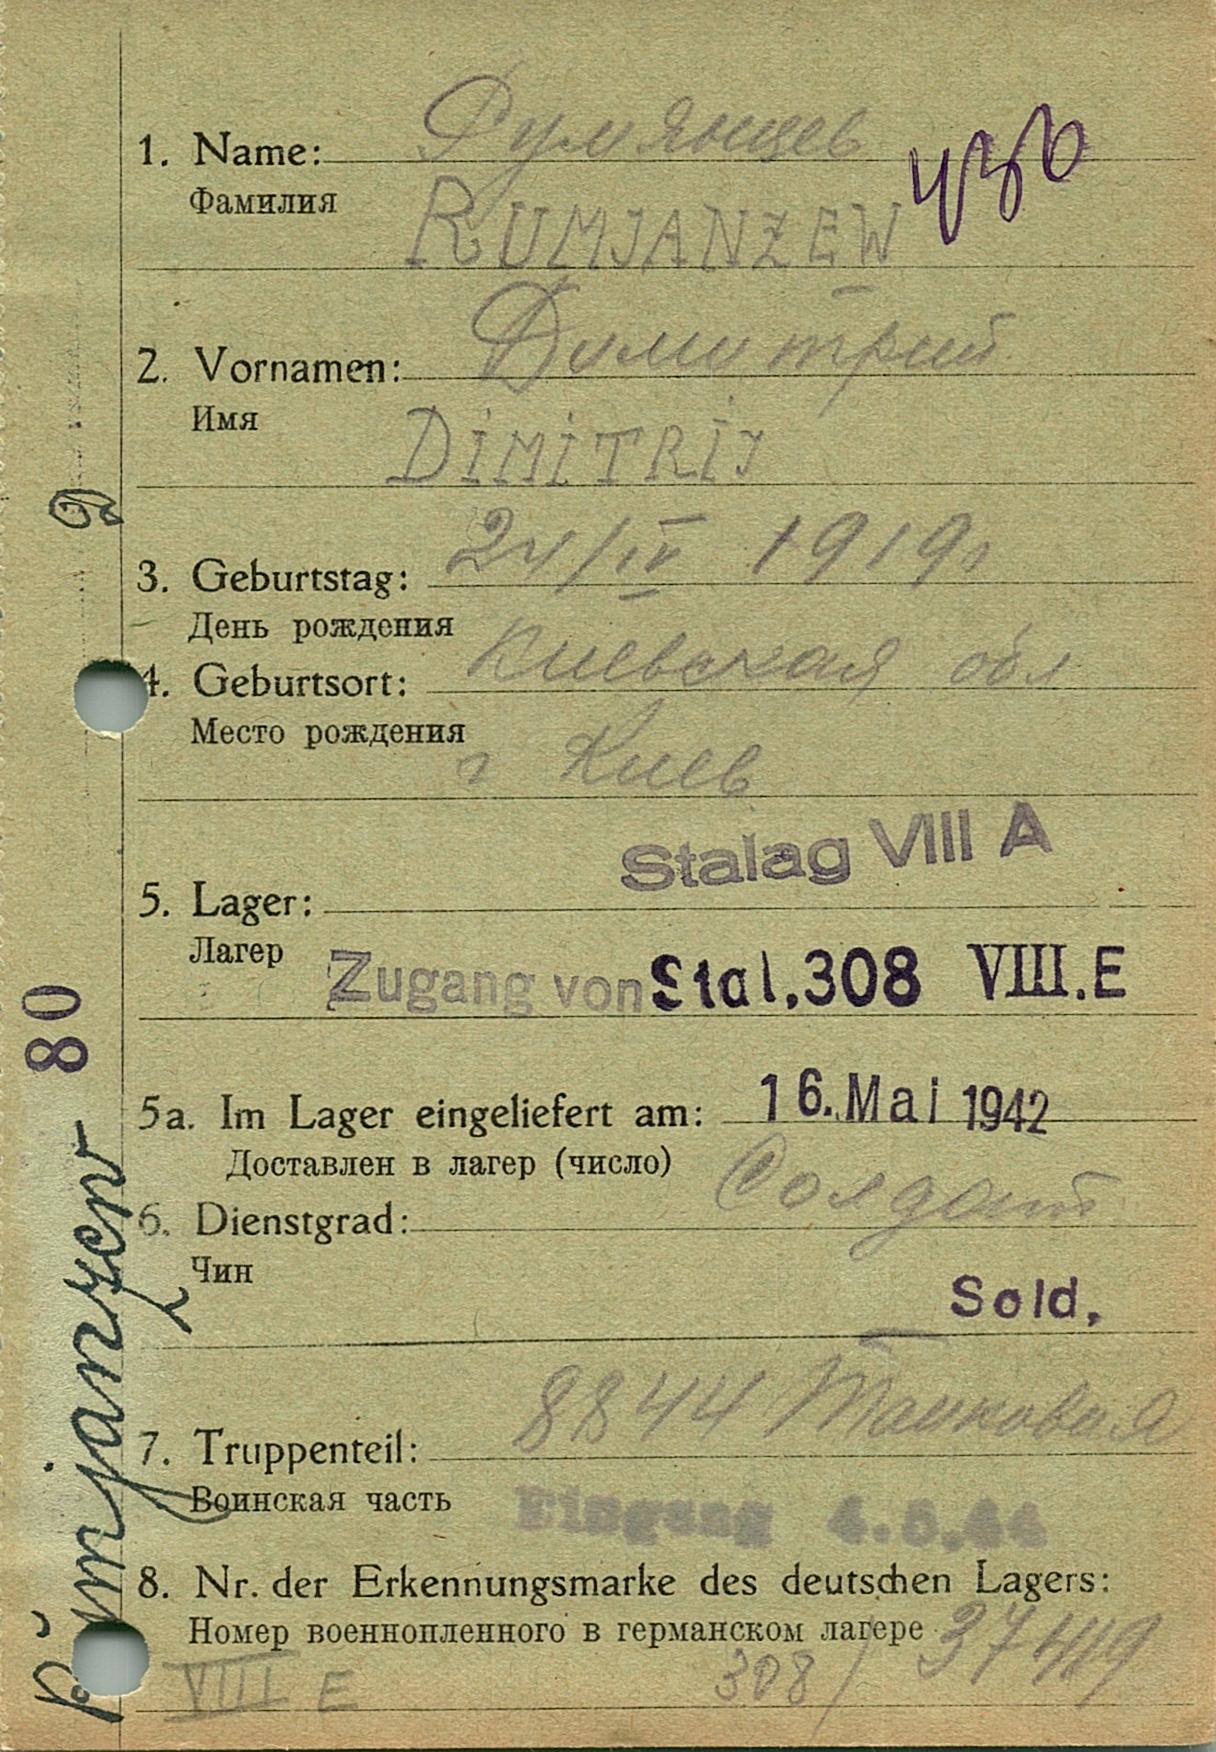 Румянцев
1. Name:
430
Фамилия
RUMJANZEW
Димитрий
2. Vornamen:
Имя
DIMITRIJ
24/IV 1919г
3. Geburtstag:
День рождения
Киевская обл
4. Geburtsort:
Место рождения
г Киев
Stalag VIII A
5. Lager:
Лагер
Zugang von Stal.308 VIII.E
5a. Im Lager eingeliefert am: 16. Mai 1942
Доставлен в лагер (число)
Солдат
6. Dienstgrad:
Чин
Sold.
8844 Танковая
7. Truppenteil:
Воинская часть
Eingang
8. Nr. der Erkennungsmarke des deutschen Lagers:
Номер военнопленного в германском лагере 37419
VIII E 308/
Rŭmjanzew 80